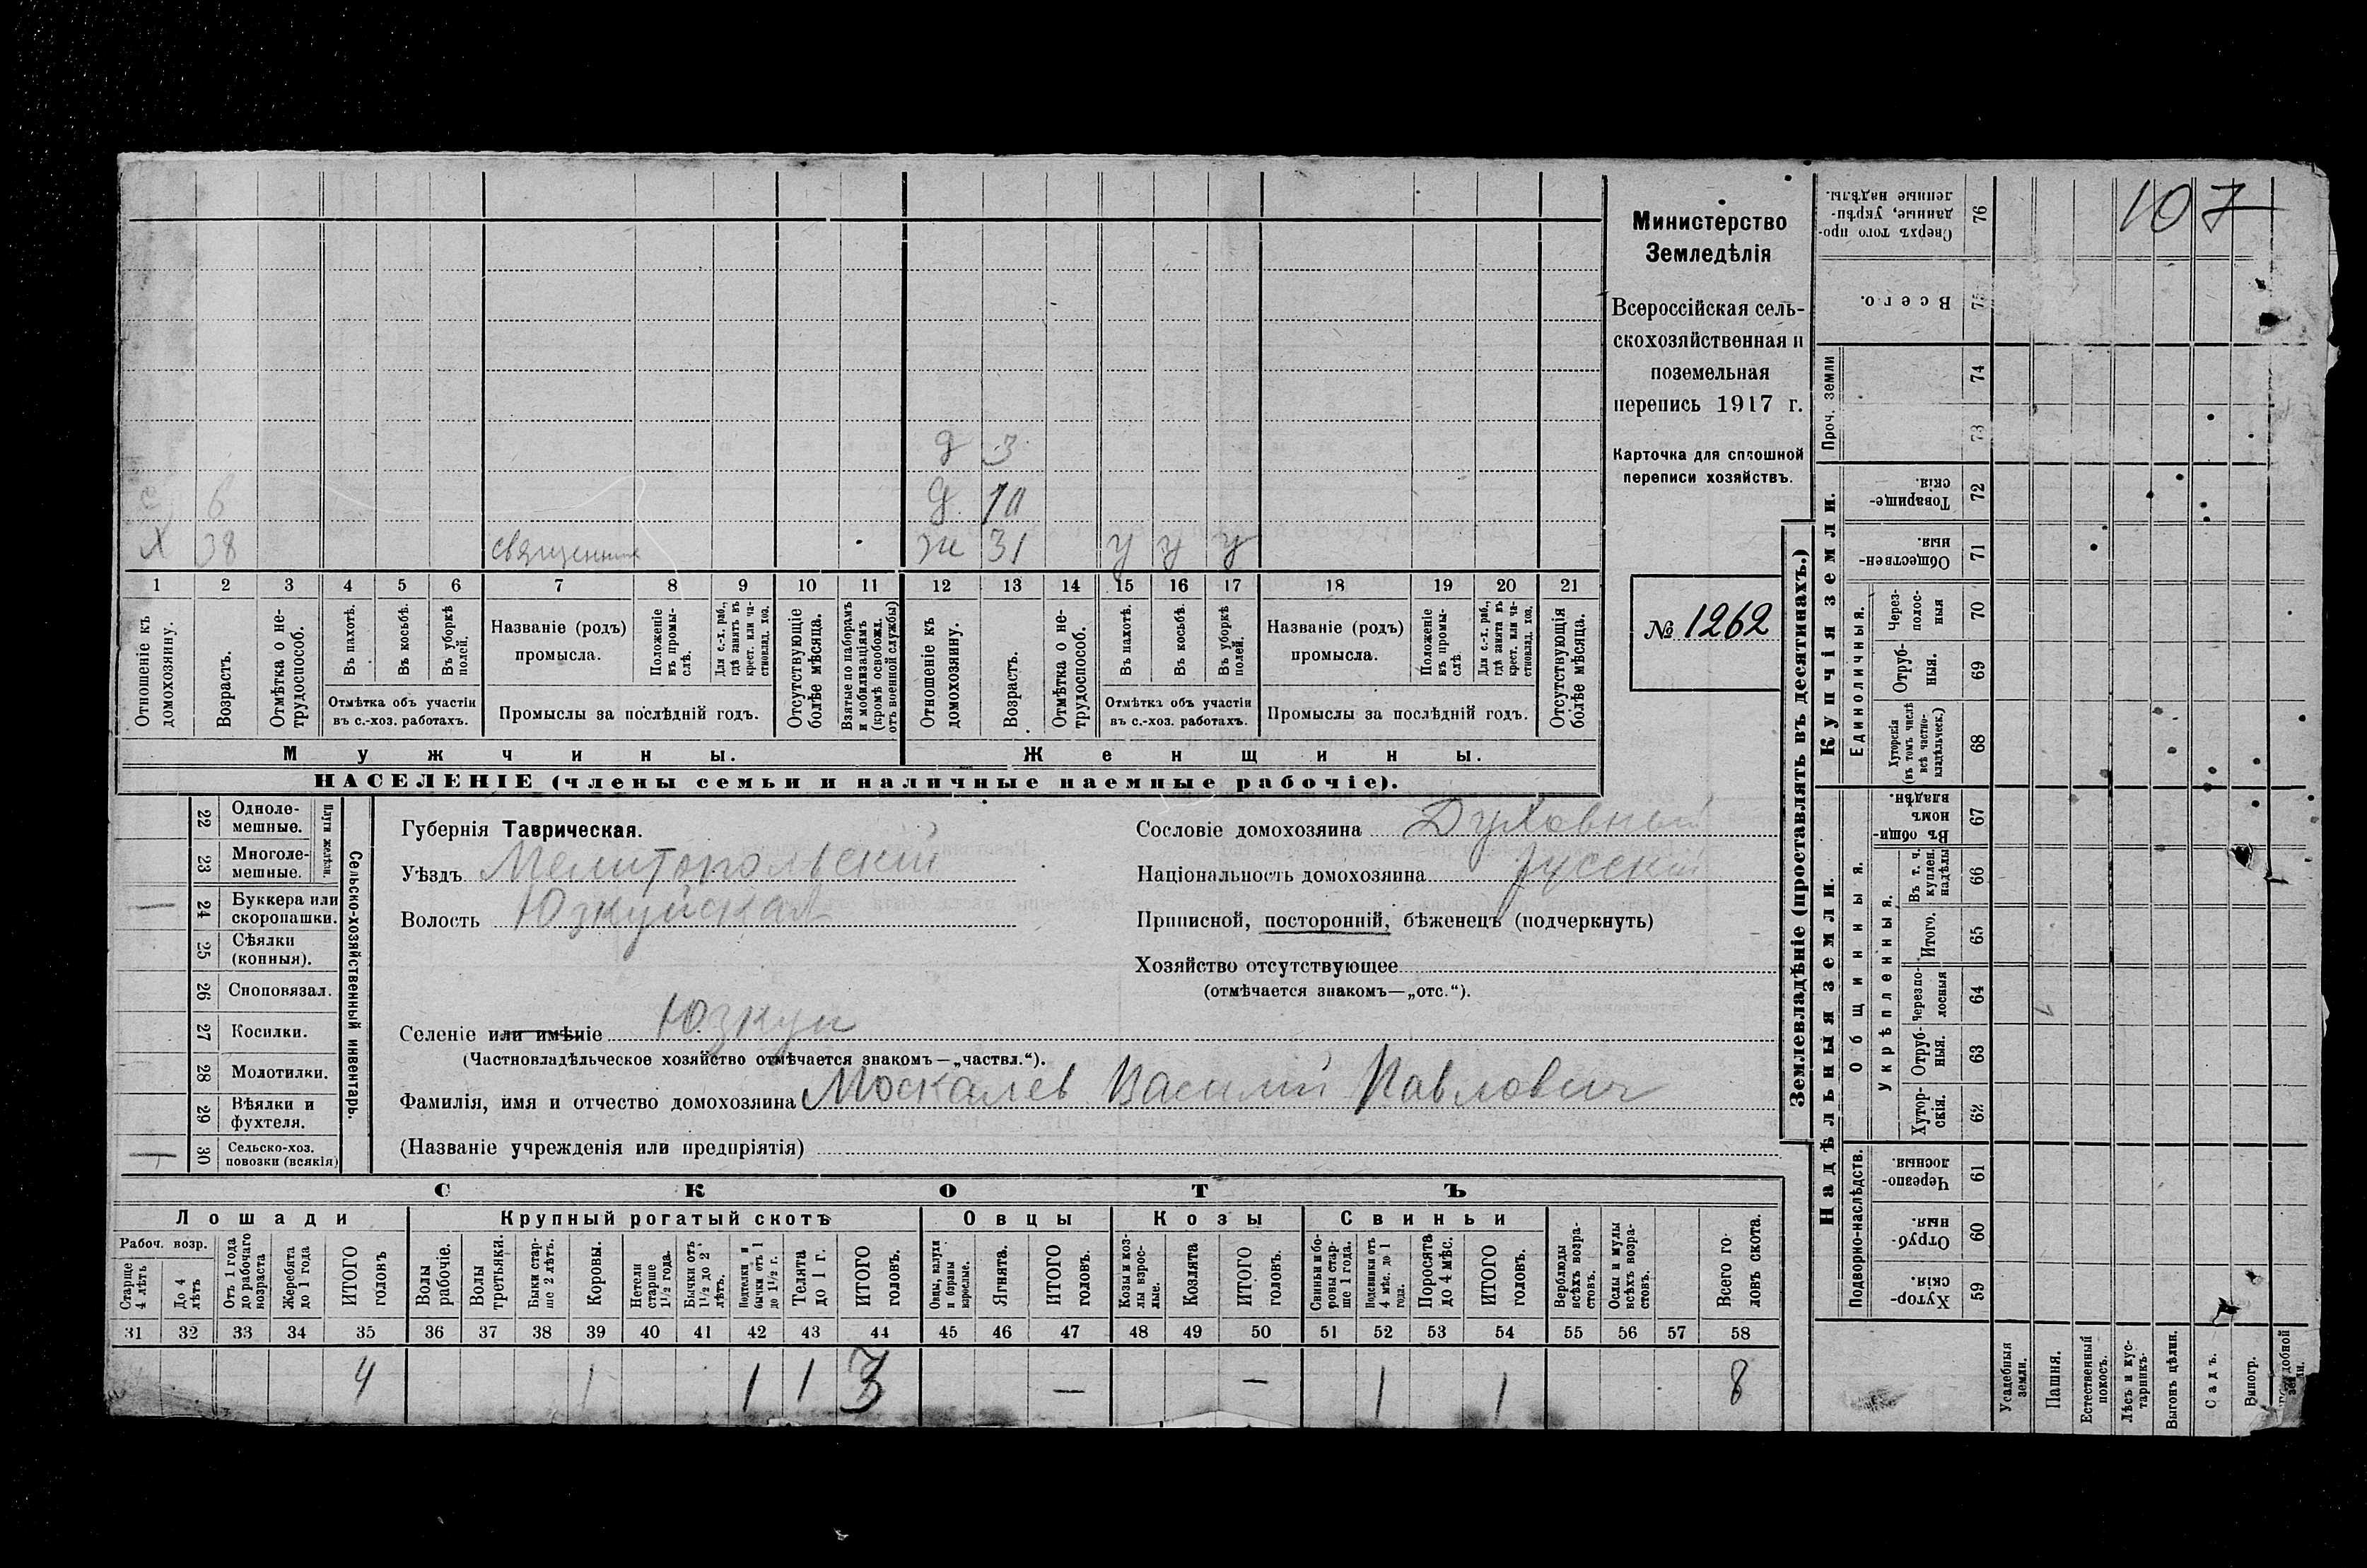 107
Министерство
Земледѣлія
Всероссійская сель-
скохозяйственная и
поземельная
перепись 1917 г.
Карточка для сплошной
переписи хозяйствъ.
№ 1262
д 3
с 6 д 10
х 38 священник ж 31 у у у
1 2 3 4 5 6 7 8 9 10 11 12 13 14 15 16 17 18 19 20 21
Отношеніе къ домохозяину.
Возрастъ.
Отмѣтка о не-трудоспособ.
Въ пахотѣ.
Въ косьбѣ.
Въ уборкѣ полей.
Отмѣтка объ участіи
въ с.-хоз. работахъ.
Названіе (родъ)
промысла.
Положеніе въ промы-слѣ.
Для с.-х. раб., гдѣ занятъ въ крест. или ча-стновлад. хоз.
Промыслы за послѣдній годъ.
Отсутствующіе болѣе мѣсяца.
Взятые по наборамъ и мобилизаціямъ (кромѣ освобожд. отъ военной службы)
Отношеніе къ домохозяину.
Возрастъ.
Отмѣтка о не-трудоспособ.
Въ пахотѣ.
Въ косьбѣ.
Въ уборкѣ полей.
Отмѣтка объ участіи
въ с.-хоз. работахъ.
Названіе (родъ)
промысла.
Положеніе въ промы-слѣ
Для с.-х. раб., гдѣ занята въ крест. или ча-стновлад. хоз.
Промыслы за послѣдній годъ.
Отсутствующія болѣе мѣсяца.
Мужчины. Женщины.
НАСЕЛЕНІЕ (члены семьи и наличные наемные рабочіе).
Сельско-хозяйственный инвентарь.
Плуги желѣзн.
22 Одноле-мешные.
23 Многоле-мешные.
— 24 Буккера или скоропашки.
25 Сѣялки (конныя).
26 Сноповязал.
27 Косилки.
28 Молотилки.
29 Вѣялки и фухтеля.
30 Сельско-хоз. повозки (всякія)
Губернія Таврическая.
Уѣздъ Мелитопольскій
Волость Юзкуйская
Селеніе или имѣніе Юзкуи
(Частновладѣльческое хозяйство отмѣчается знакомъ—„частвл.“).
Фамилія, имя и отчество домохозяина Москалев Василий Павлович
(Названіе учрежденія или предпріятія)
Сословіе домохозяина Духовный
Національность домохозяина русский
Приписной, посторонній, бѣженецъ (подчеркнуть)
Хозяйство отсутствующее
(отмѣчается знакомъ—„отс.“).
СКОТЪ
Лошади Крупный рогатый скотъ Овцы Козы Свиньи
Рабоч. возр.
Старше 4 лѣтъ
До 4 лѣтъ
Отъ 1 года до рабочаго возраста
Жеребята до 1 года
ИТОГО головъ
Волы рабочие.
Волы третьяки.
Быки стар-ше 2 лѣтъ.
Коровы.
Нетели старше 1½ года.
Бычки отъ 1½ до 2 лѣтъ.
Подтелки и бычки отъ 1 до 1½ г.
Телята до 1 г.
ИТОГО головъ.
Овцы, валухи и бараны взрослые.
Ягнята.
ИТОГО головъ.
Козы и коз-лы взрос-лые.
Козлята
ИТОГО головъ.
Свиньи и бо-ровы стар-ше 1 года.
Подсвинки отъ 4 мѣс. до 1 года.
Поросята до 4 мѣс.
ИТОГО головъ.
Верблюды всѣхъ возра-стовъ.
Ослы и мулы всѣхъ возра-стовъ.
Всего го-ловъ скота.
31 32 33 34 35 36 37 38 39 40 41 42 43 44 45 46 47 48 49 50 51 52 53 54 55 56 57 58
4 1 1 1 3 — — 1 1 8
Землевладѣніе (проставлять въ десятинахъ.)
Купчія земли.
Надѣльныя земли.
Сверхъ того про-данные, укрѣп-ленные надѣлы. 76
Всего. 75
Проч. земли 74
73
Товарище-скія. 72
Обществен-ныя. 71
Единоличныя.
Через-полос-ныя 70
Отруб-ныя. 69
Хуторскія (въ томъ числѣ всѣ частно-владѣльческ.) 68
Общинныя.
Въ общин-номъ владѣн. 67
Укрѣпленныя.
Въ т. ч. куплен. надѣлы 66
Итого. 65
Черезпо-лосныя 64
Отруб-ныя. 63
Хутор-скія. 62
Подворно-наслѣдств.
Черезпо-лосныя. 61
Отруб-ныя. 60
Хутор-скія. 59
Усадебныя земли.
Пашня.
Естественный покосъ.
Лѣсъ и кус-тарникъ.
Выгонъ цѣлин.
Садъ.
Виногр.